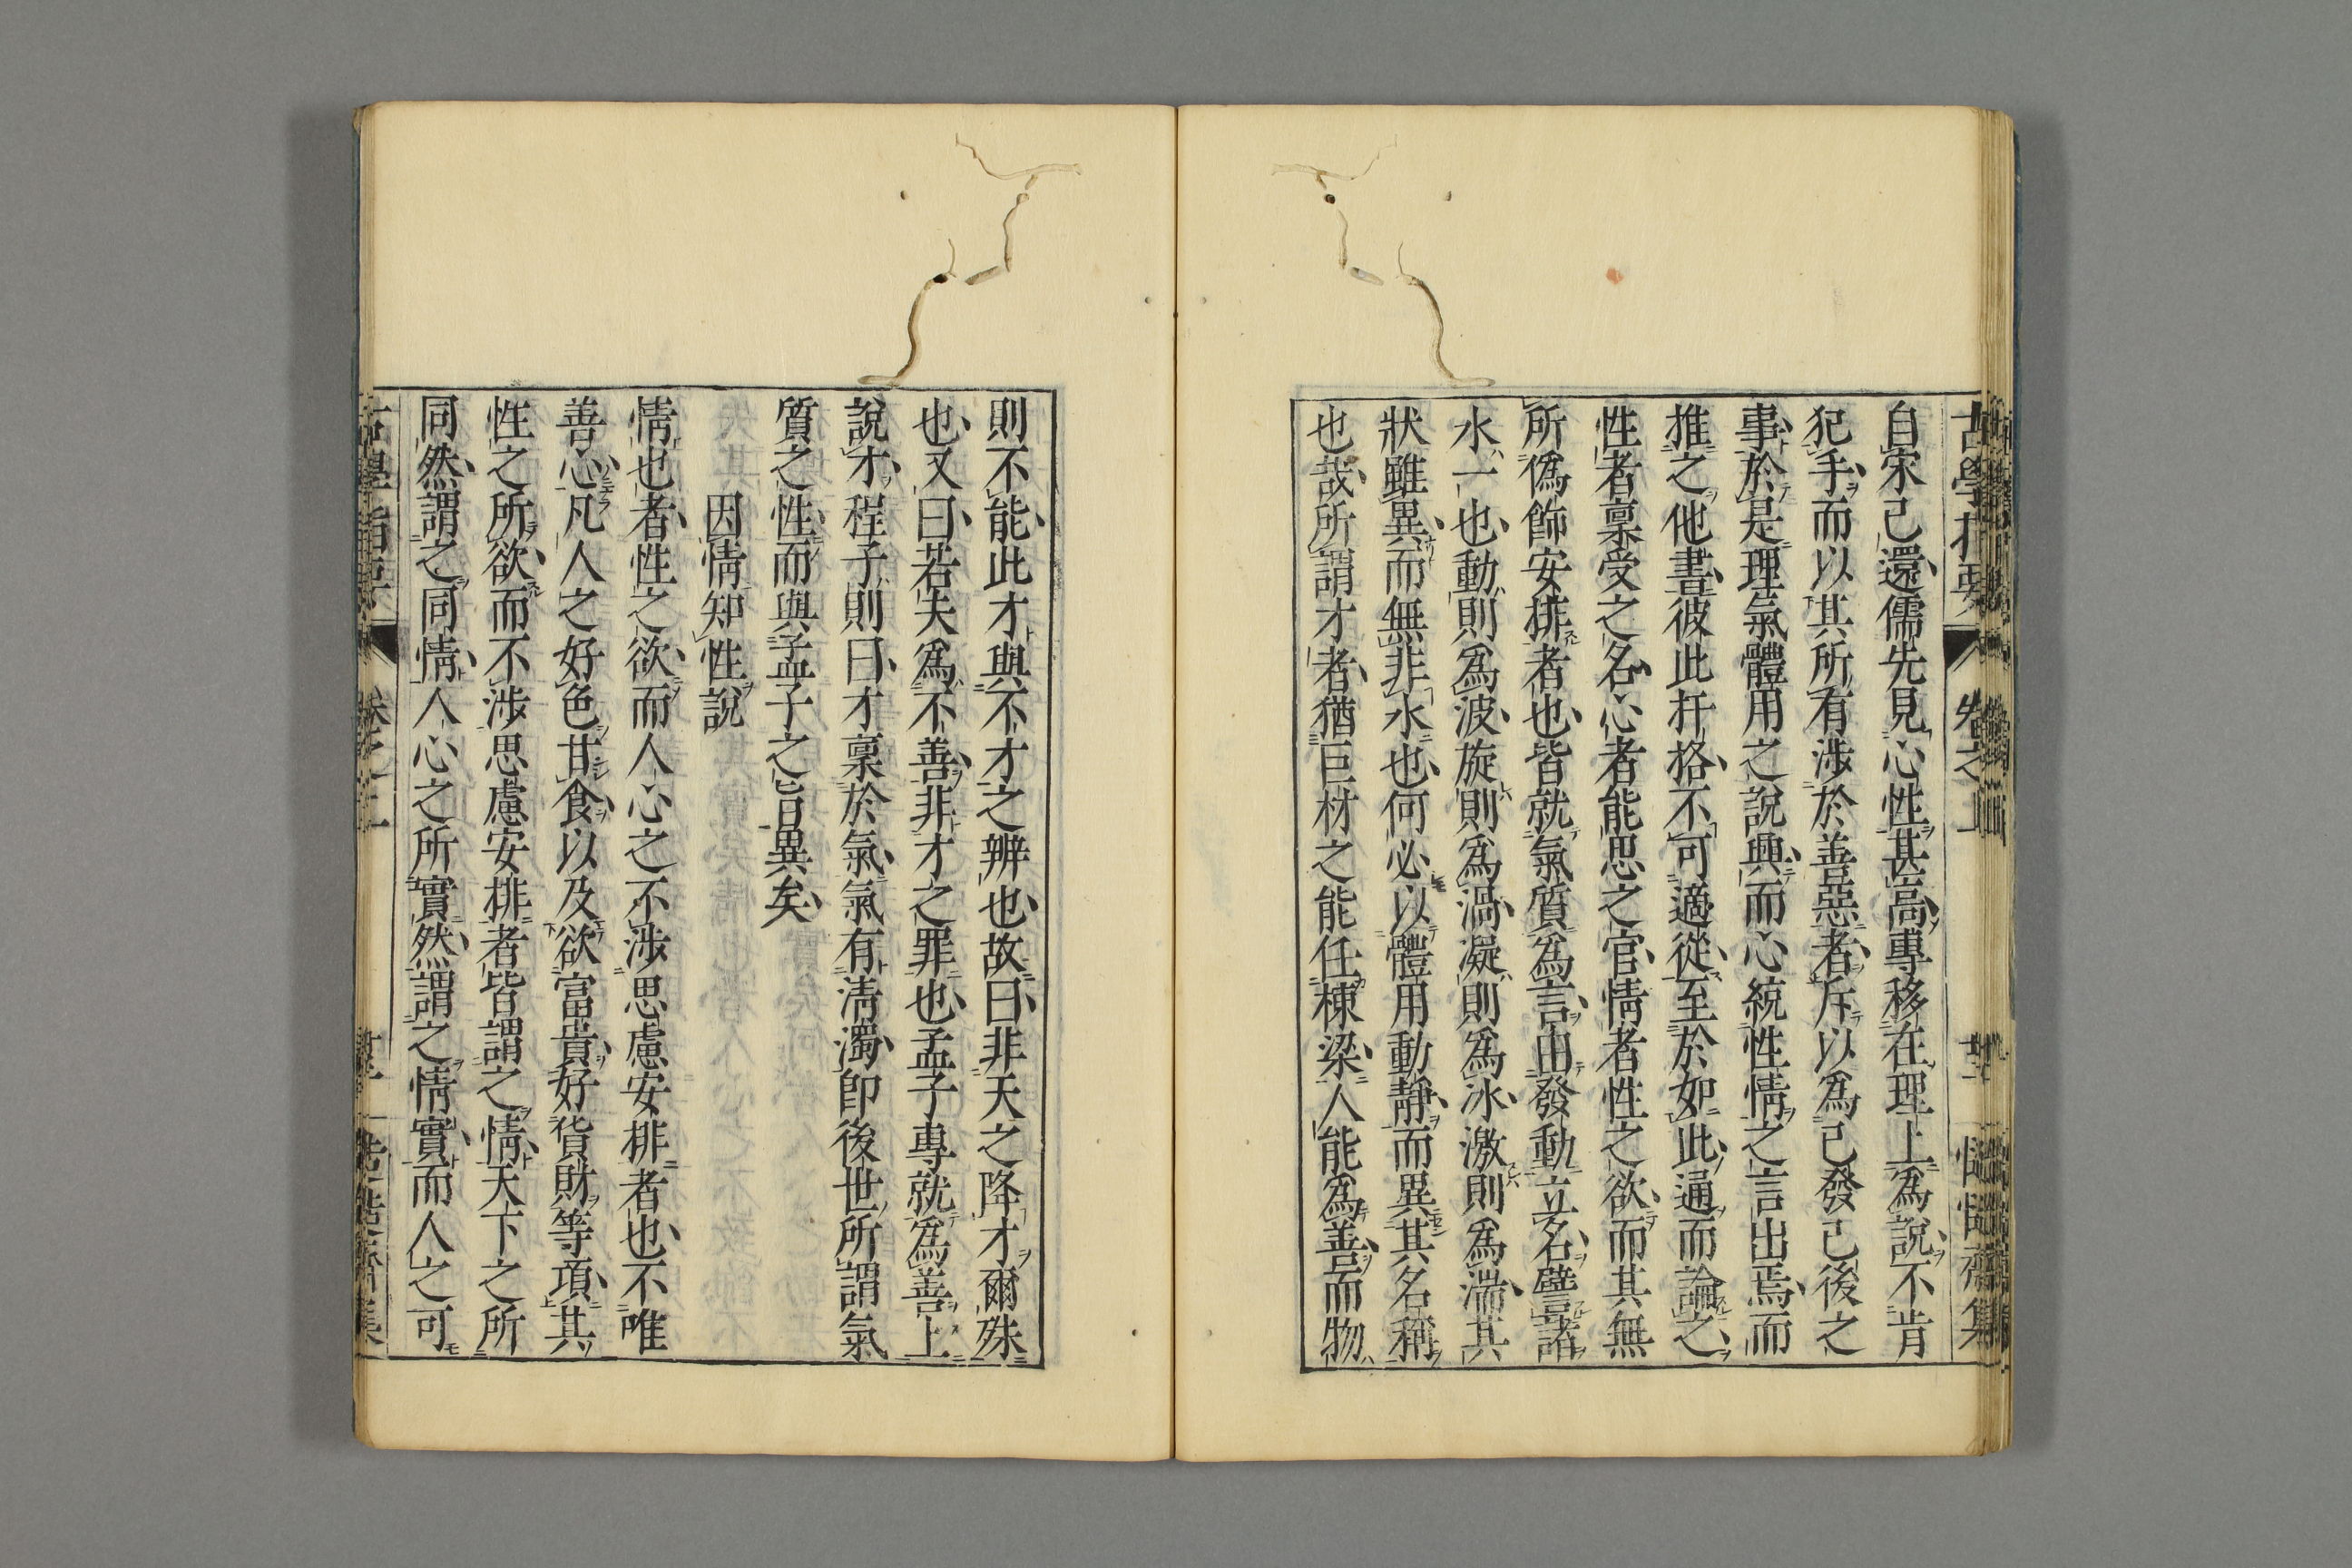 古學指要
卷之上
自宋已還儒先見心性甚高專移在理上爲說不肯
犯手而以其所有涉於善惡者斥以爲已發已後之
事於是理氣體用之說興而心統性情之言出焉而
推之他書彼此扞格不可適從至於如此通而論之
性者稟受之名心者能思之官情者性之欲而其無
所僞飾安排者也皆就氣質爲言由發動立名譬諸
水一也動則爲波旋則爲渦凝則爲冰激則爲湍其
狀雖異而無非水也何必以體用動靜而異其名稱
也哉所謂才者猶巨材之能任棟梁人能爲善而物
則不能此才與不才之辨也故曰非天之降才爾殊
也又曰若夫爲不善非才之罪也孟子專就爲善上
說才程子則曰才稟於氣氣有淸濁卽後世所謂氣
質之性而與孟子之旨異矣
因情知性說
情也者性之欲而人心之不涉思慮安排者也不唯
善心凡人之好色甘食以及欲富貴好貨財等項其
性之所欲而不涉思慮安排者皆謂之情天下之所
同然謂之同情人心之所實然謂之情實而人之可